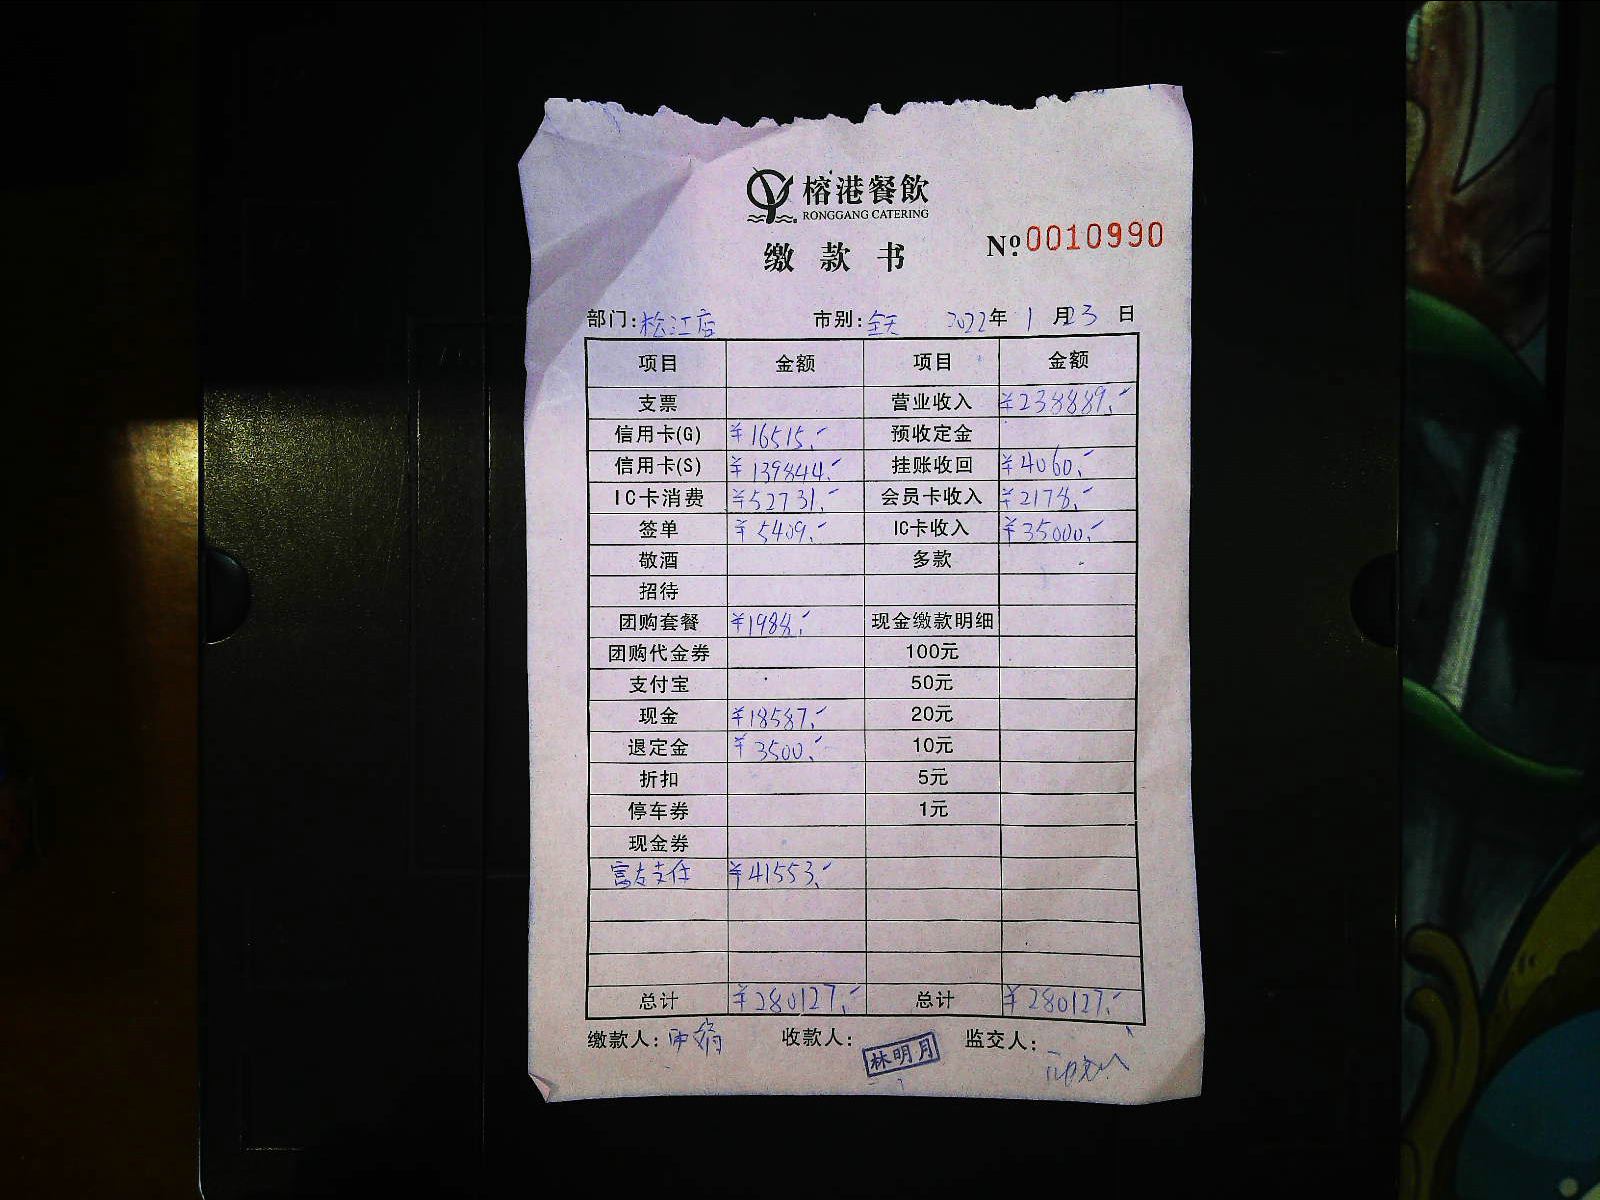 榕港餐飲
RONGGANG CATERING
缴款书
Nº 0010990
部门:松江店 市别:全天 2022年1月23日
项目 金额 项目 金额
支票 营业收入 ¥238889.-
信用卡(G) ¥16515.- 预收定金
信用卡(S) ¥139844.- 挂账收回 ¥4060.-
IC卡消费 ¥52731.- 会员卡收入 ¥2178.-
签单 ¥5409.- IC卡收入 ¥35000.-
敬酒 多款
招待
团购套餐 ¥1988.- 现金缴款明细
团购代金券 100元
支付宝 50元
现金 ¥18587.- 20元
退定金 ¥3500.- 10元
折扣 5元
停车券 1元
现金券
富友支付 ¥41553.-
总计 ¥280127.- 总计 ¥280127.-
缴款人: 收款人: 林明月 监交人: